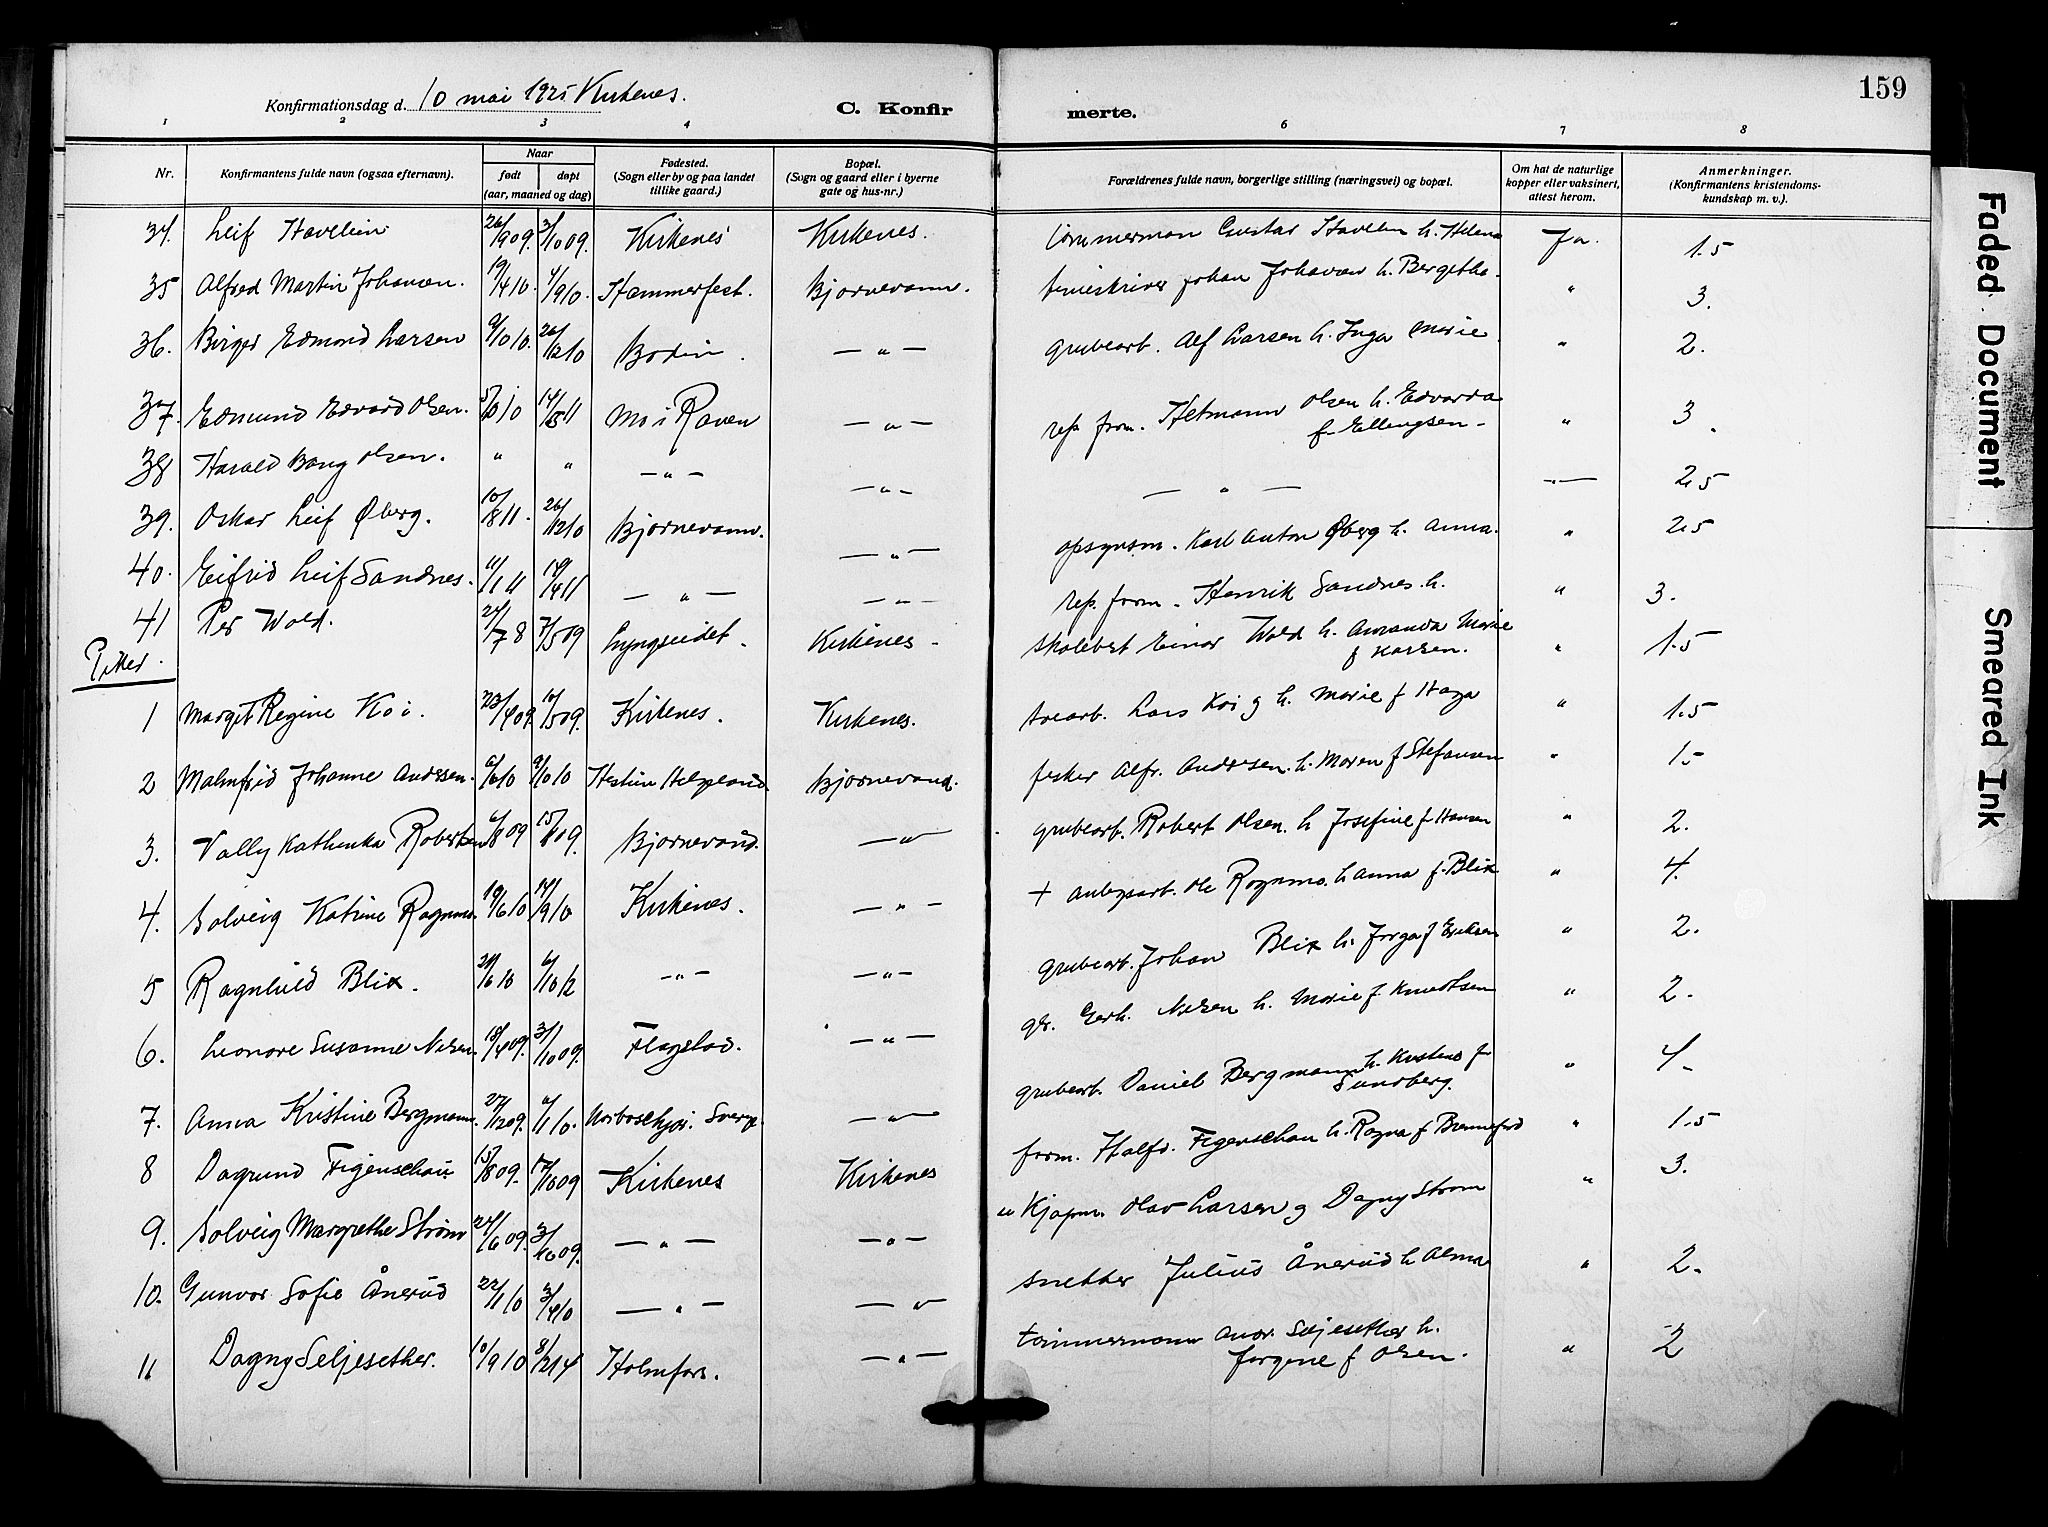 159
Konfirmationsdag d. 10 mai 1925 Kirkenes.
C. Konfir
merte.
1 2 3 4 5 6 7 8
Nr.
Konfirmantens fulde navn (ogsaa efternavn).
Naar
født
døpt
(aar, maaned og dag)
Fødested.
(Sogn eller by og paa landet
tillike gaard.)
Bopæl.
(Sogn og gaard eller i byerne
gate og hus-nr.)
Forældrenes fulde navn, borgerlige stilling (næringsvei) og bopæl.
Om hat de naturlige
kopper eller vaksinert,
attest herom.
Anmerkninger.
(Konfirmantens kristendoms-
kundskap m. v.)
34. Leif Havelin 26/9 09. 3/10 09. Kirkenes Kirkenes. tømmerman Gustav h. Helena Ja. 1.5
35 Alfred Martin Johansen. 19/4 10. 4/9 10. Hammerfest. Bjørnevann. Johan Johansen h. Bergetha. " 3.
36. Birger Edmond Larsen 9/10 10. 26/12 10 Bodin. — " — grubearb. Alf Larsen h. Inga Marie " 2.
37. Edmund Edvard Olsen. 5/10 10 14/5 11 Mo i Ranen — " — rep. form. Hetmann Olsen h. Edvarda
f. Ellengsen — " 3.
38 Harald Bang Olsen. " " — " — — " — — " — — " — 2.5
39. Oskar Leif Øberg. 10/8 11. 26/12 10 Bjørnevann. — " — opsynsm. Karl Anton Øberg h. Anna. " 2.5
40. Eifrid Leif Sandnes. 11/1 11 19/4 11 — " — — " — rep. form. Henrik Sandnes h. " 3.
41 Per Wold. 24/7 8 7/5 09 Lyngseidet. Kirkenes — skolebest Einar Wold h. Amanda Marie
f Karsen. " 1.5
Piker.
1 Marget Regine Koi. 23/4 09. 10/5 09. Kirkenes. Kirkenes. Lars Koi g h. Marie f Haga " 1.5
2 Malmfrid Johanne Andersen. 6/6 10 9/10 10 Helgeland Bjørnevand. fisker Alfr. Andersen. h. Maren f Stefansen " 1.-
3. Vally Kathinka Robertsen 6/8 09 Bjørnevand. — " — grubearb. Robert Olsen. h Josefine f Hansen " 2.
4. Solveig Katrine Rognmo. 19/6 10 14/9 10 Kirkenes. — " — + Ole Rognmo. h Anna f. Blix " 4.
5 Ragnhild Blix. 6/10 12 — " — — " — grubearb. Johan Blix h. Jorga f Eriksen " 2.
6. Leonore Susanne Nilsen 18/4 09. 3/10 09. Flagstad. — " — gr. Gerh. Nilsen h. Marie f. Knudtsen " 2.
7. Anna Kristine Bergmann 27/12 09. Sverge. — " — grubearb. Daniel Bergmann h. Kristine f
Sundberg. " 4.
8 Dagrund Figenschau 15/8 09. 17/10 09 Kirkenes Kirkenes form. Halfd. Figenschau h. Ragna f " 1.5
9. Solveig Margrethe Strøm 24/6 09. 3/10 09. — " — — " — u Kjøpm. Olav Larsen g Dagny Strøm " 3.
10. Gunvor Sofie Ånerud 22/1 10 3/4 10 — " — — " — snekker Julius Ånerud h Alma " 2.
11 Dagny Seljesether. 10/9 10 8/2 14 Holmfors. — " — tømmermann Andr. Seljesether h.
Jørgine f Olsen. " 2
Faded Document
Smeared Ink